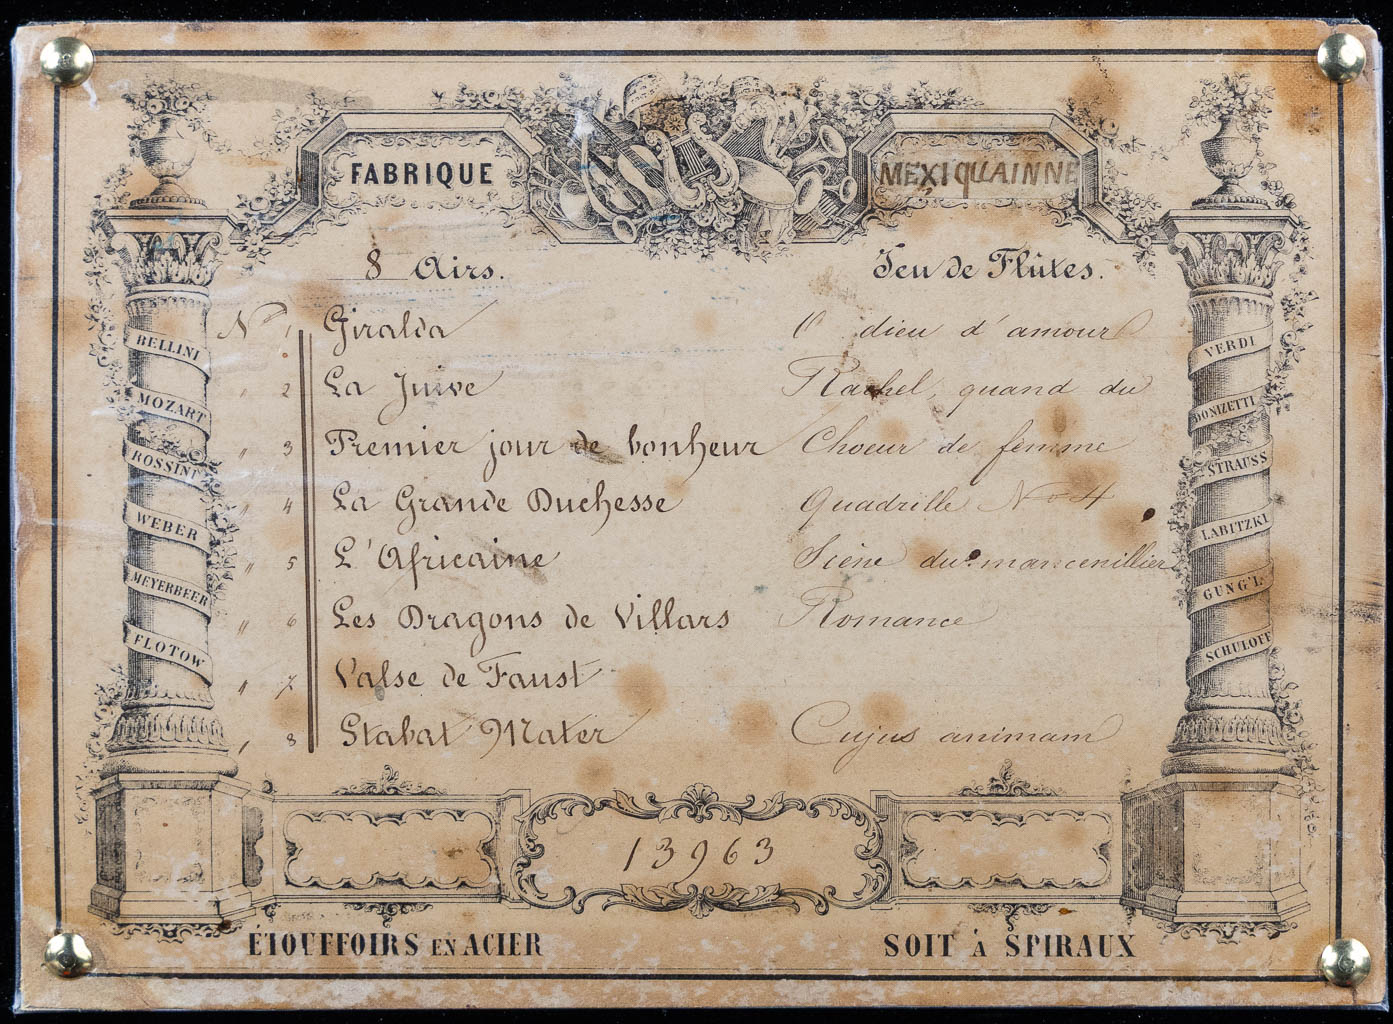 FABRIQUE MEXIQUAINNE
8 Airs. Jeu de Flûtes.
No 1 Giralda O dieu d'amour
" 2 La Juive Rachel, quand du
" 3 Premier jour de bonheur Choeur de femme
" 4 La Grande Duchesse Quadrille No 4
" 5 L'Africaine Scène du mancenillier
" 6 Les Dragons de Villars Romance
" 7 Valse de Faust
" 8 Stabat Mater Cujus animam
BELLINI
MOZART
ROSSINI
WEBER
MEYERBEER
FLOTOW
VERDI
DONIZETTI
STRAUSS
LABITZKI
GUNG'L
SCHULOFF
13963
ÉTOUFFOIRS EN ACIER SOIT À SPIRAUX